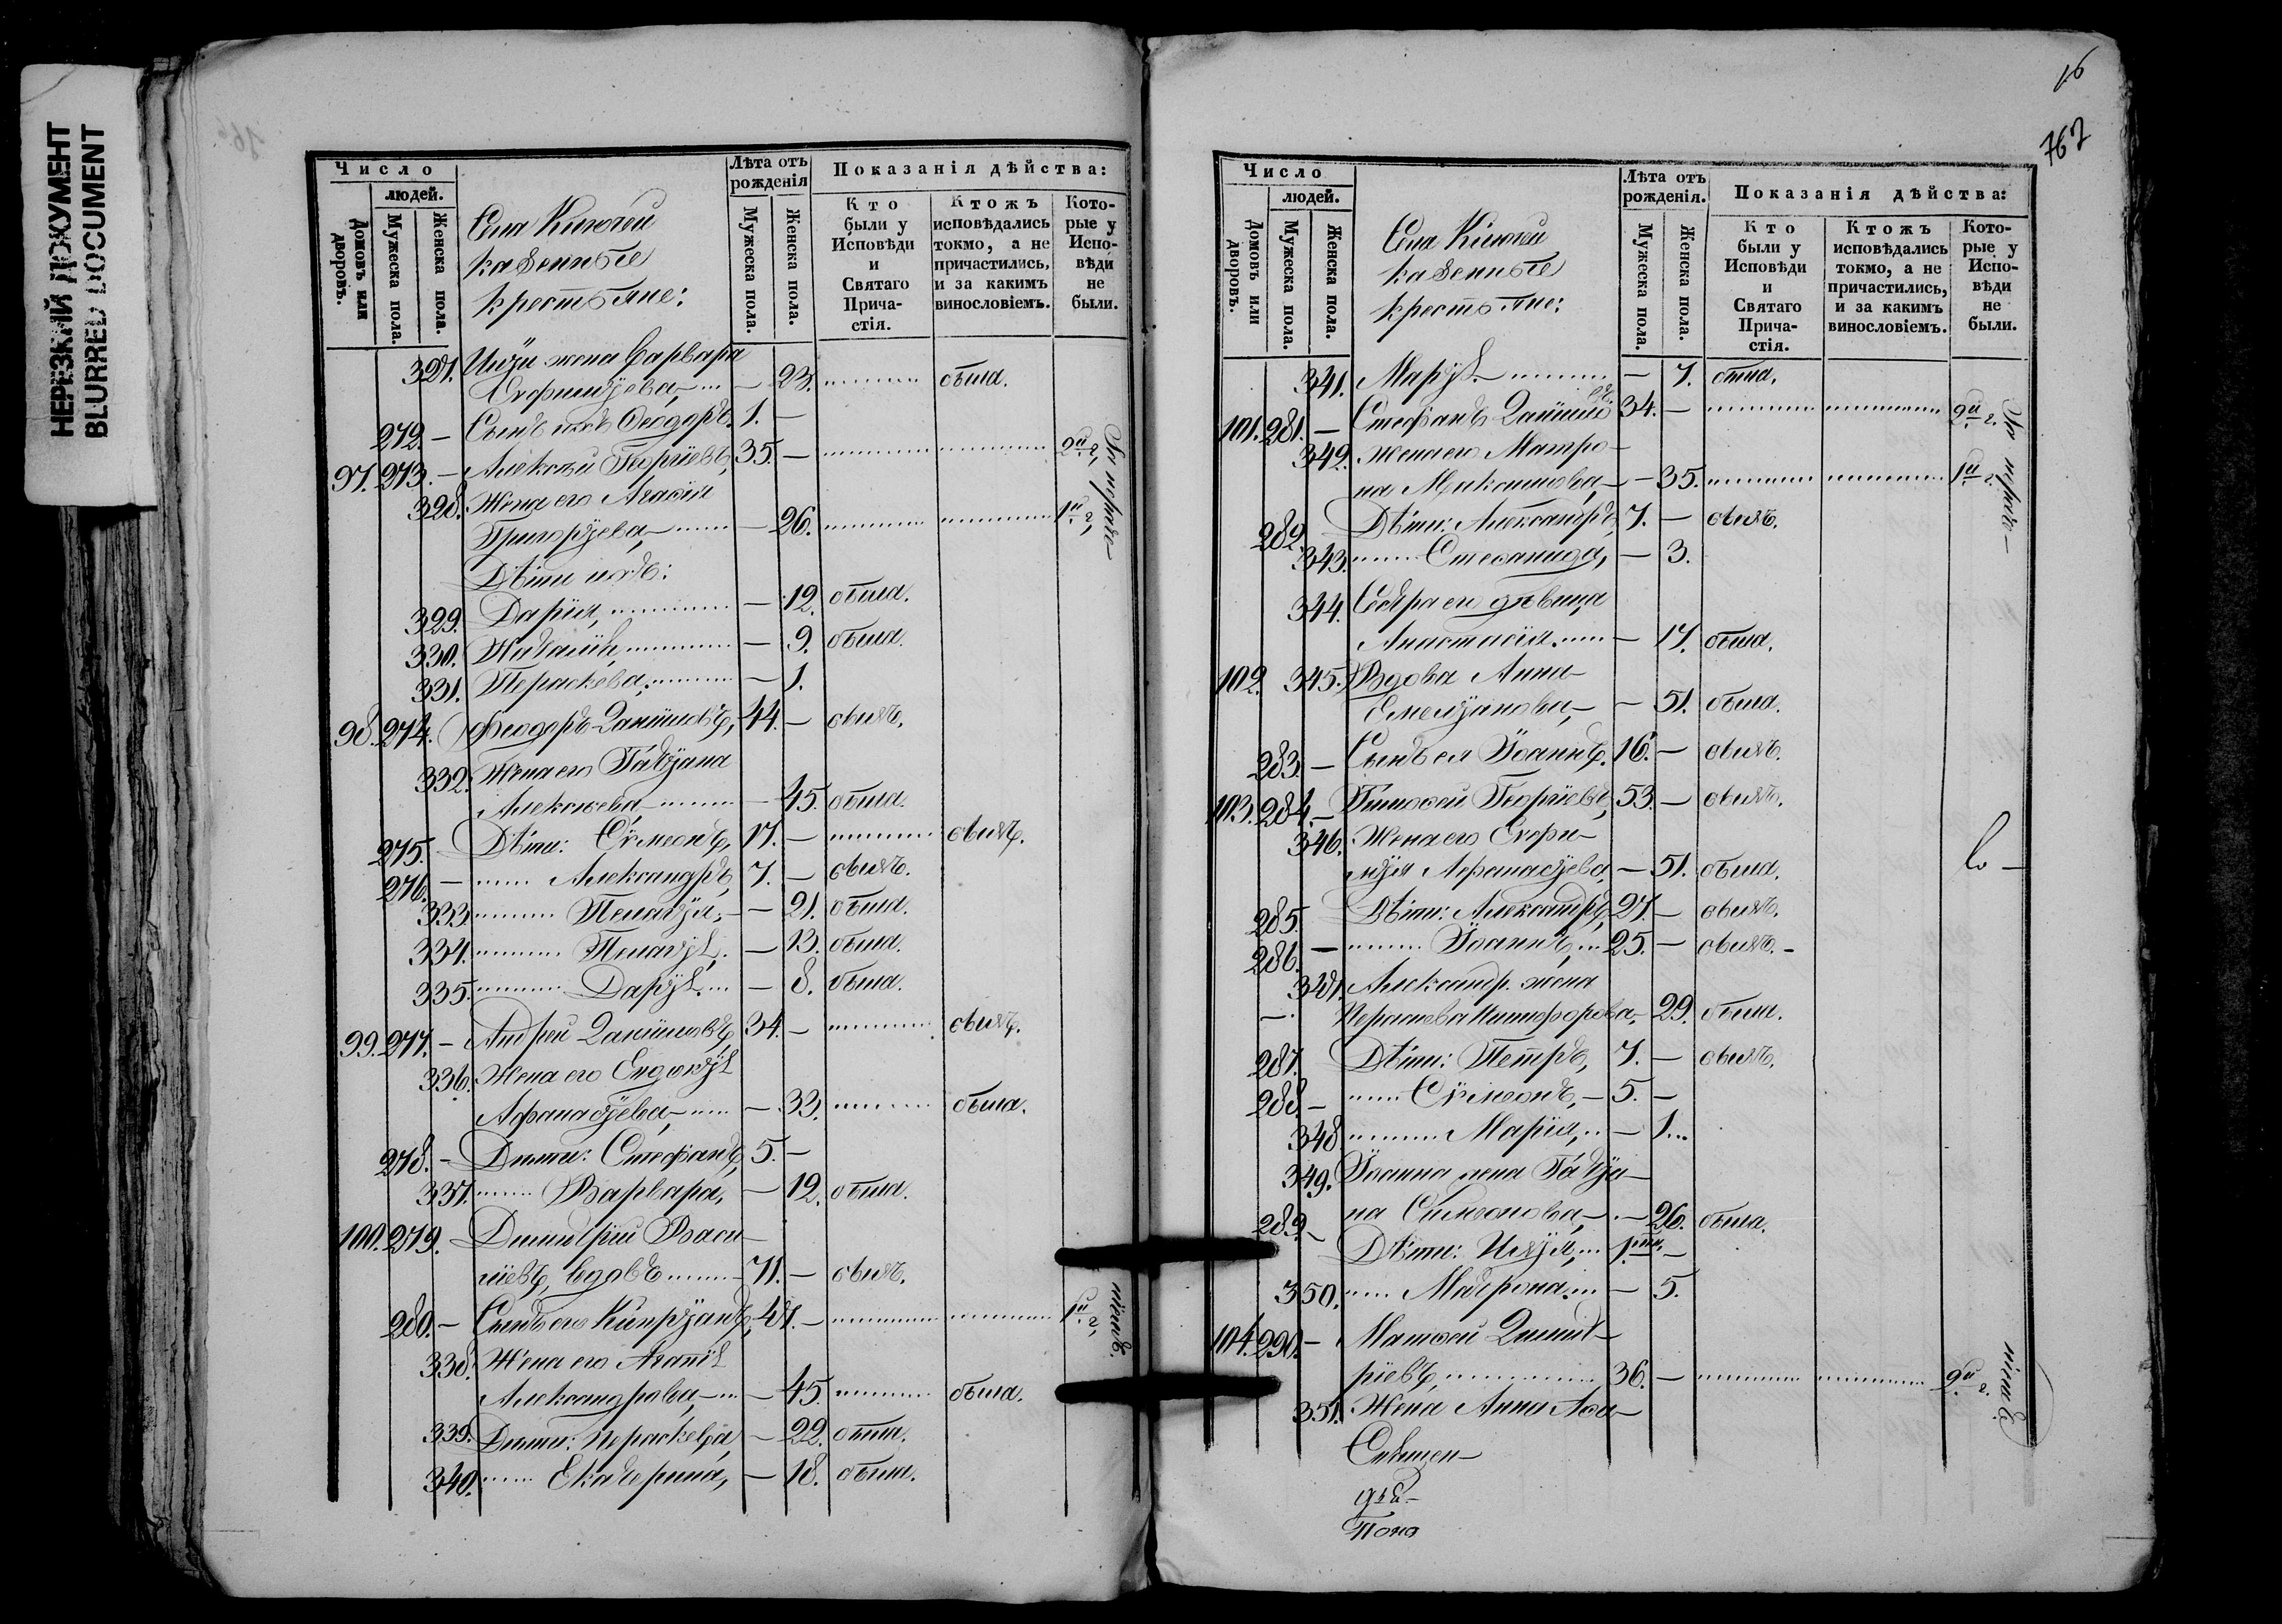 НЕРЕЗКИЙ ДОКУМЕНТ
BLURRED DOCUMENT
Число
людей.
Домовъ или дворовъ.
Мужеска пола.
Женска пола.
казенные
крестьяне:
Лѣта отъ рожденія
Мужеска пола.
Женска пола.
Показанія дѣйства:
Кто были у Исповѣди и Святаго Прича-стія.
Ктожъ исповѣдались токмо, а не причастились, и за какимъ винословіемъ.
Кото-рые у Испо-вѣди не были.
327. жена Варвара
— 23. была.
272. — Сынъ ихъ Ѳеодоръ. 1. —
97. 273. — Алексѣй Георгіевъ, 35. — 2й г.
328. Жена его
Григорьева, — 26. 1й г.
Дѣти ихъ:
329. Дарія, — 12. была.
330. — 9. была.
331. Параскева, — 1.
98. 274. Ѳеодоръ Даніиловъ, 44. — былъ.
332. Жена его Татіана
Алексѣева — 45. была.
275. Дѣти: Сѵмеонъ, 17. — былъ.
276. — Александръ, 7. — былъ.
333. Пелагія, — 21. была.
334. Пелагія, — 13. была.
335. Дарія — 8. была.
99. 277. — Андрей Даніиловъ, 34. — былъ.
336. Жена его Евдокія
Афанасіева, — 33. была.
278. — Дѣти: Стефанъ, 5. —
337. Варвара, — 12. была.
100. 279. — Димитрій Васи-
ліевъ, вдовъ 71. — былъ.
280. — Сынъ его Кипріанъ, 47. — 1й г.
338. Жена его Агапія
Александрова, — 45. была.
339. Дѣти: Параскева — 22. была.
340. Екатерина, — 18. была.
16
767
Число
людей.
Домовъ или дворовъ.
Мужеска пола.
Женска пола.
казенные
крестьяне:
Лѣта отъ рожденія.
Мужеска пола.
Женска пола.
Показанія дѣйства:
Кто были у Исповѣди и Святаго Прича-стія.
Ктожъ исповѣдались токмо, а не причастились, и за какимъ винословіемъ.
Кото-рые у Испо-вѣди не были.
341. Марія — 7. была.
101. 281. — Стефанъ Даніиловъ 34. — 2й г.
342. Жена его Матро-
на — 35. 1й г.
282. Дѣти: Александръ, 7. — былъ.
343. Стефанида, — 3.
344. Сестра его дѣвица
Анастасія — 17. была.
102. 345. Вдова Анна
Емеліанова, — 51. была.
283. — Сынъ ея Іоаннъ, 16. — былъ.
103. 284. — Тимофей Георгіевъ, 53. — былъ.
346. Жена его
Афанасіева, — 51. была.
285. Дѣти: Александръ, 27. — былъ.
286. — Іоаннъ, 25. — былъ.
347. Александр. жена
Параскева Никифорова, 29. была.
287. Дѣти: Петръ, 7. — былъ.
288. — Сѵмеонъ, — 5. —
348. Марія, — 1.
349. Іоанна жена Татіа-
на Симеонова, — 26. была.
289. — Дѣти: Илія, 1. —
350. Матрона — 5.
104. 290. — Матѳей Димит-
ріевъ, 36. — 2й г.
351. Жена Анна Афа-
Священ-
Поно